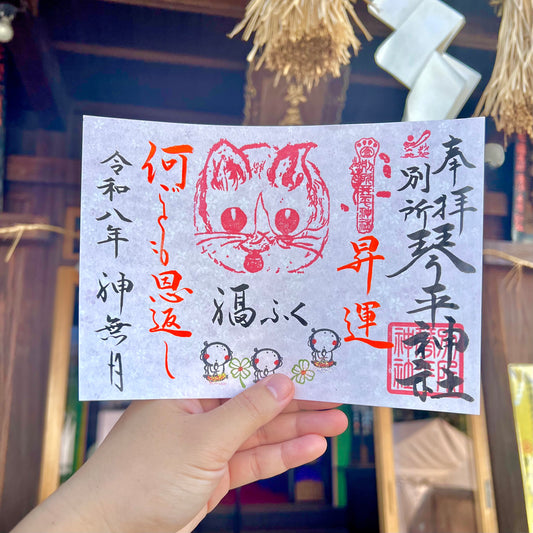 奉拝
別所
琴平神社
昇運
福ふく
何ども恩返し
令和八年
神無月